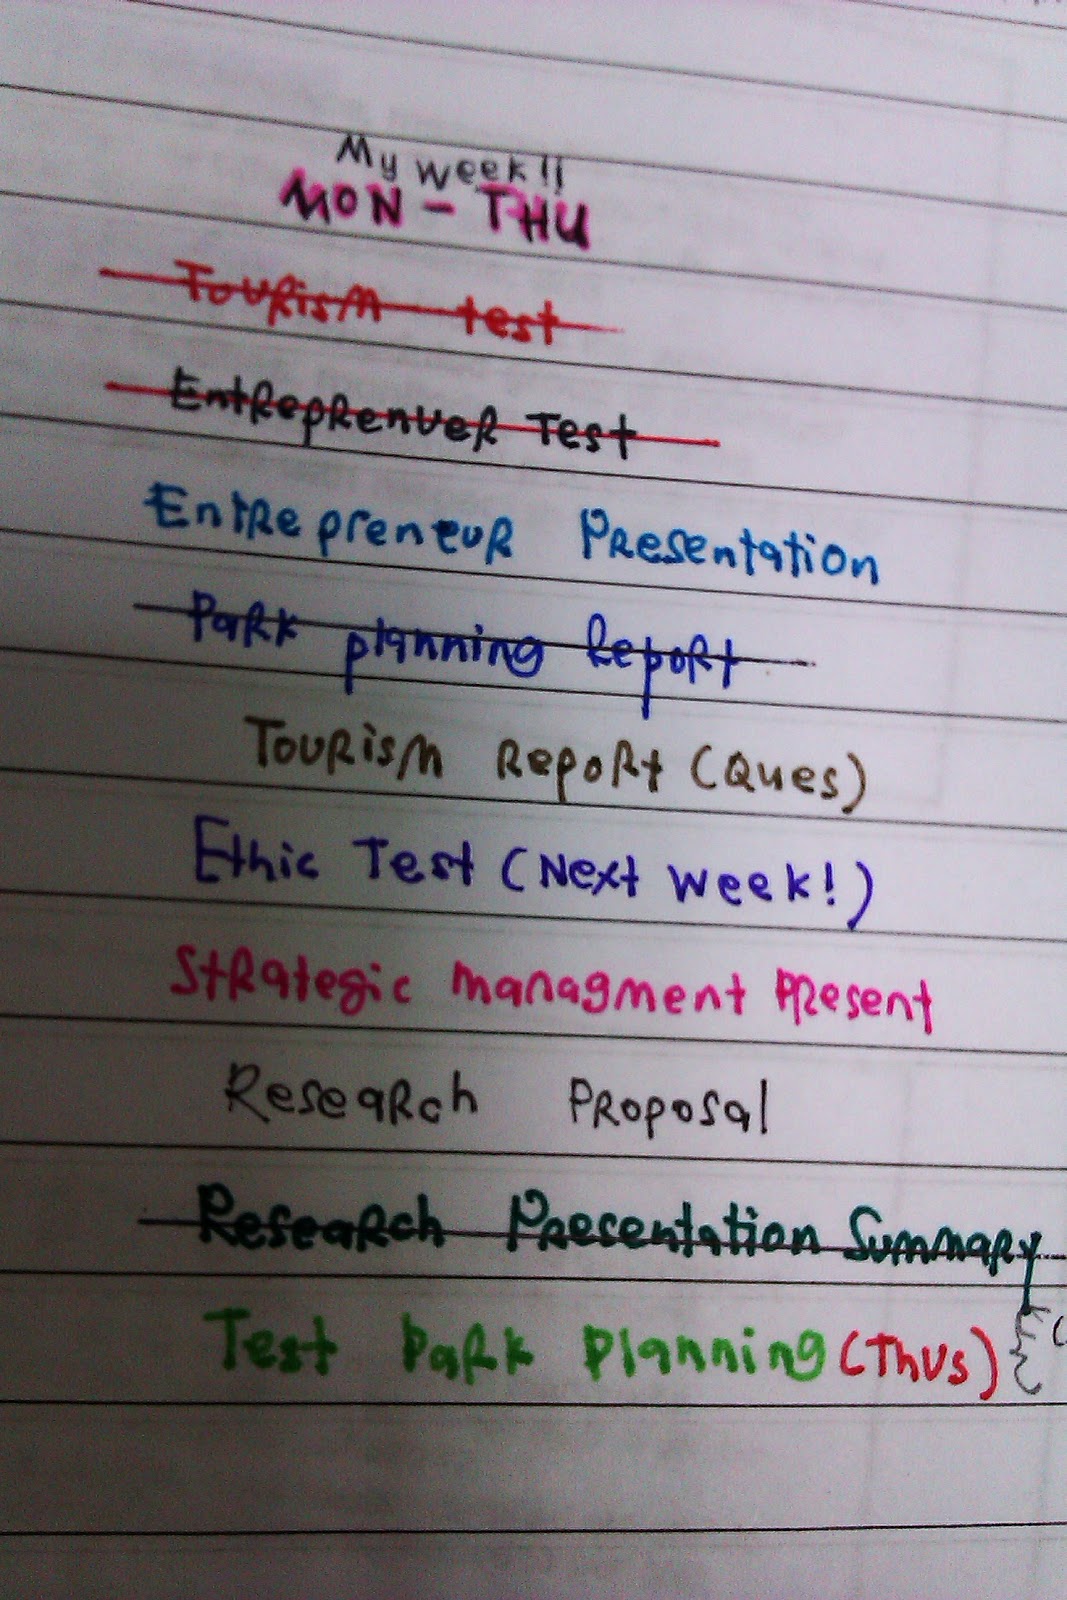 My week!!
MON - THU
Tourism test
Entreprenuer Test
Entrepreneur Presentation
Park planning Report
Tourism Report (Ques)
Ethic Test (Next week!)
Strategic managment Present
Research Proposal
Research Presentation Summary
Test Park Planning (Thus)